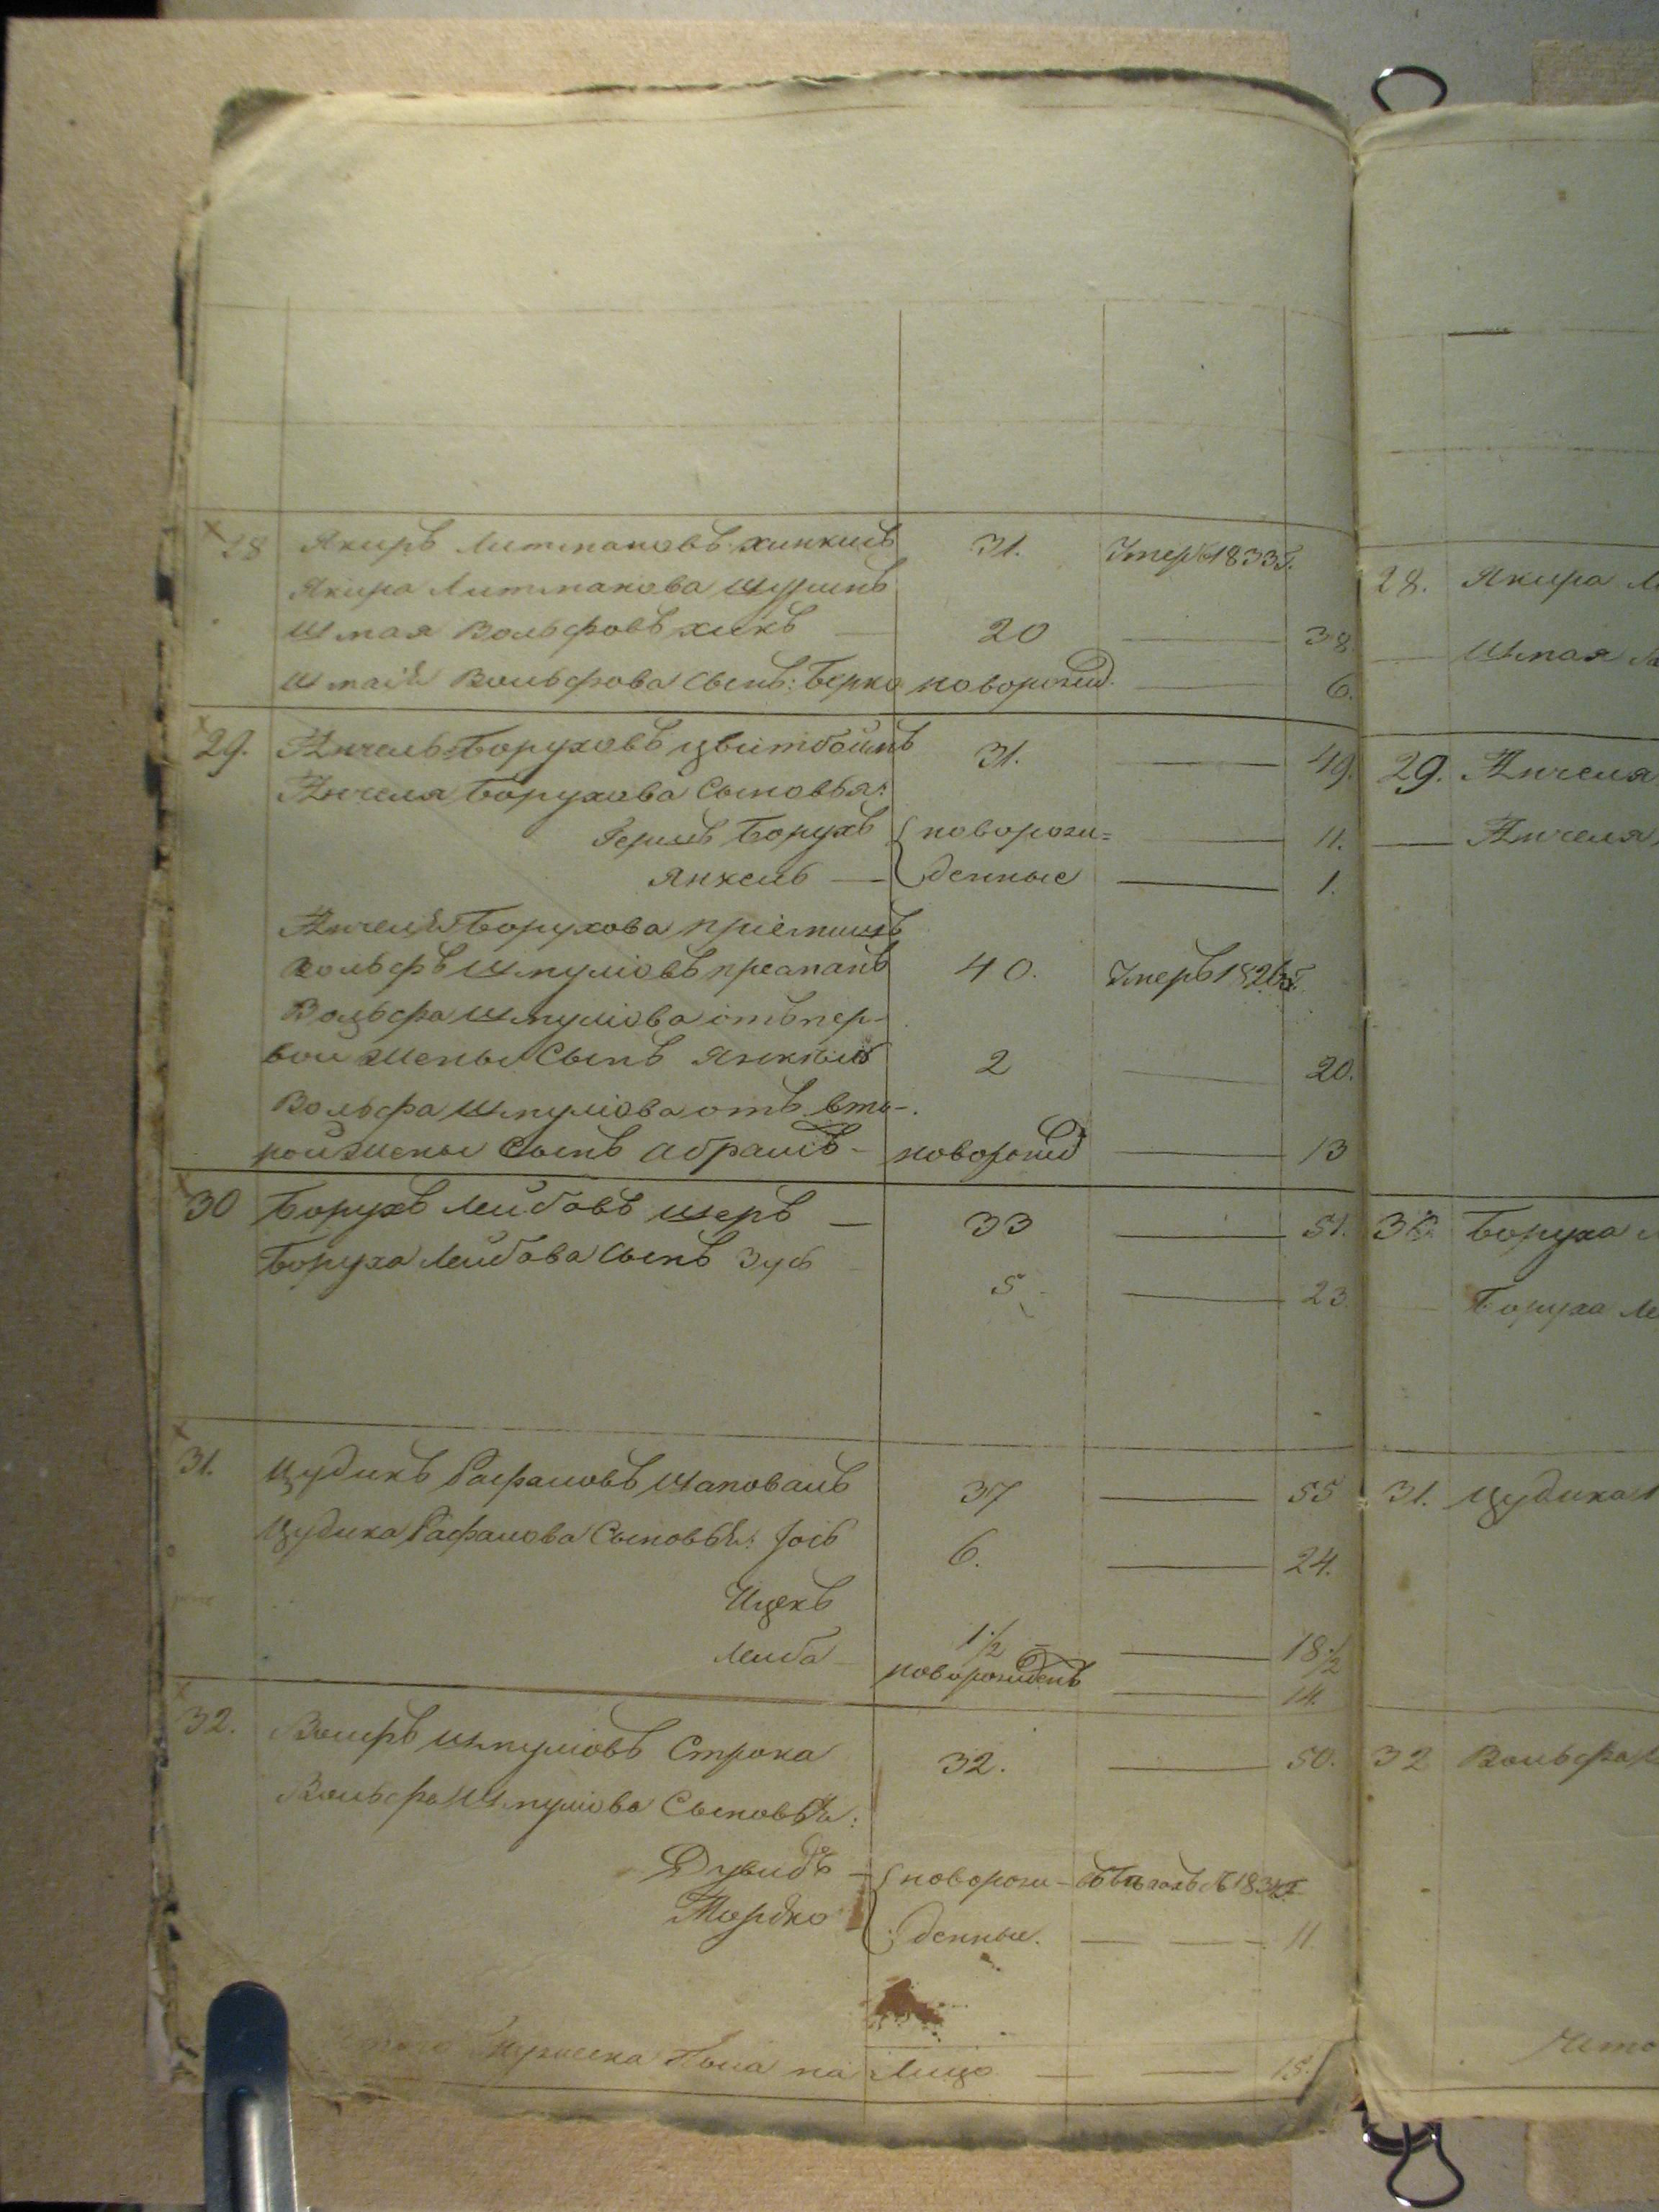 28 Якиръ Литмановъ хинкисъ 31. Умеръ 1833г.
Якира Литманова Шуринъ
Шмая Вольфовъ хикъ — 20 — 38
Шмаiя Вольфова Сынъ: Берко новорожд. — 6.
29. Анчель Боруховъ Цвитбоимъ 31. — 49.
Анчеля Борухова Сыновья:
Гершъ Борухъ новорож= — 11.
Янкель — денные — 1.
Анчеля Борухова приёмышъ
Вольфъ Шмулiовъ 40. Умеръ 1826г.
Вольфа Шмулiова отъ пер-
вой жены Сынъ Янкель 2 — 20.
Вольфа Шмулiова отъ вто-
рой жены Сынъ Абрамъ - новорожд — 13
30 Борухъ Лейбовъ Шеръ — 33 — 51.
Боруха Лейбова Сынъ Зусь 5 — 23.
31. Цудикъ Рафаловъ Шаповалъ 37 — 55
Цудика Рафалова Сыновья: Iось 6. — 24.
Ицекъ 1 1/2 — 18 1/2
Лейба — новорожденъ — 14.
32. Вольфъ Шмулiовъ Строка 32. — 50.
Вольфа Шмулiова Сыновья:
Дувидъ — новорож- въ бегахъ съ
Мордко денные. — — 11.
Итого Мужеска Пола на Лицо — — 15.
28. Якира
— Шмая
29. Анчеля
— Анчеля
30. Боруха
Боруха Ле
31. Цудика
32 Вольфа
Ито